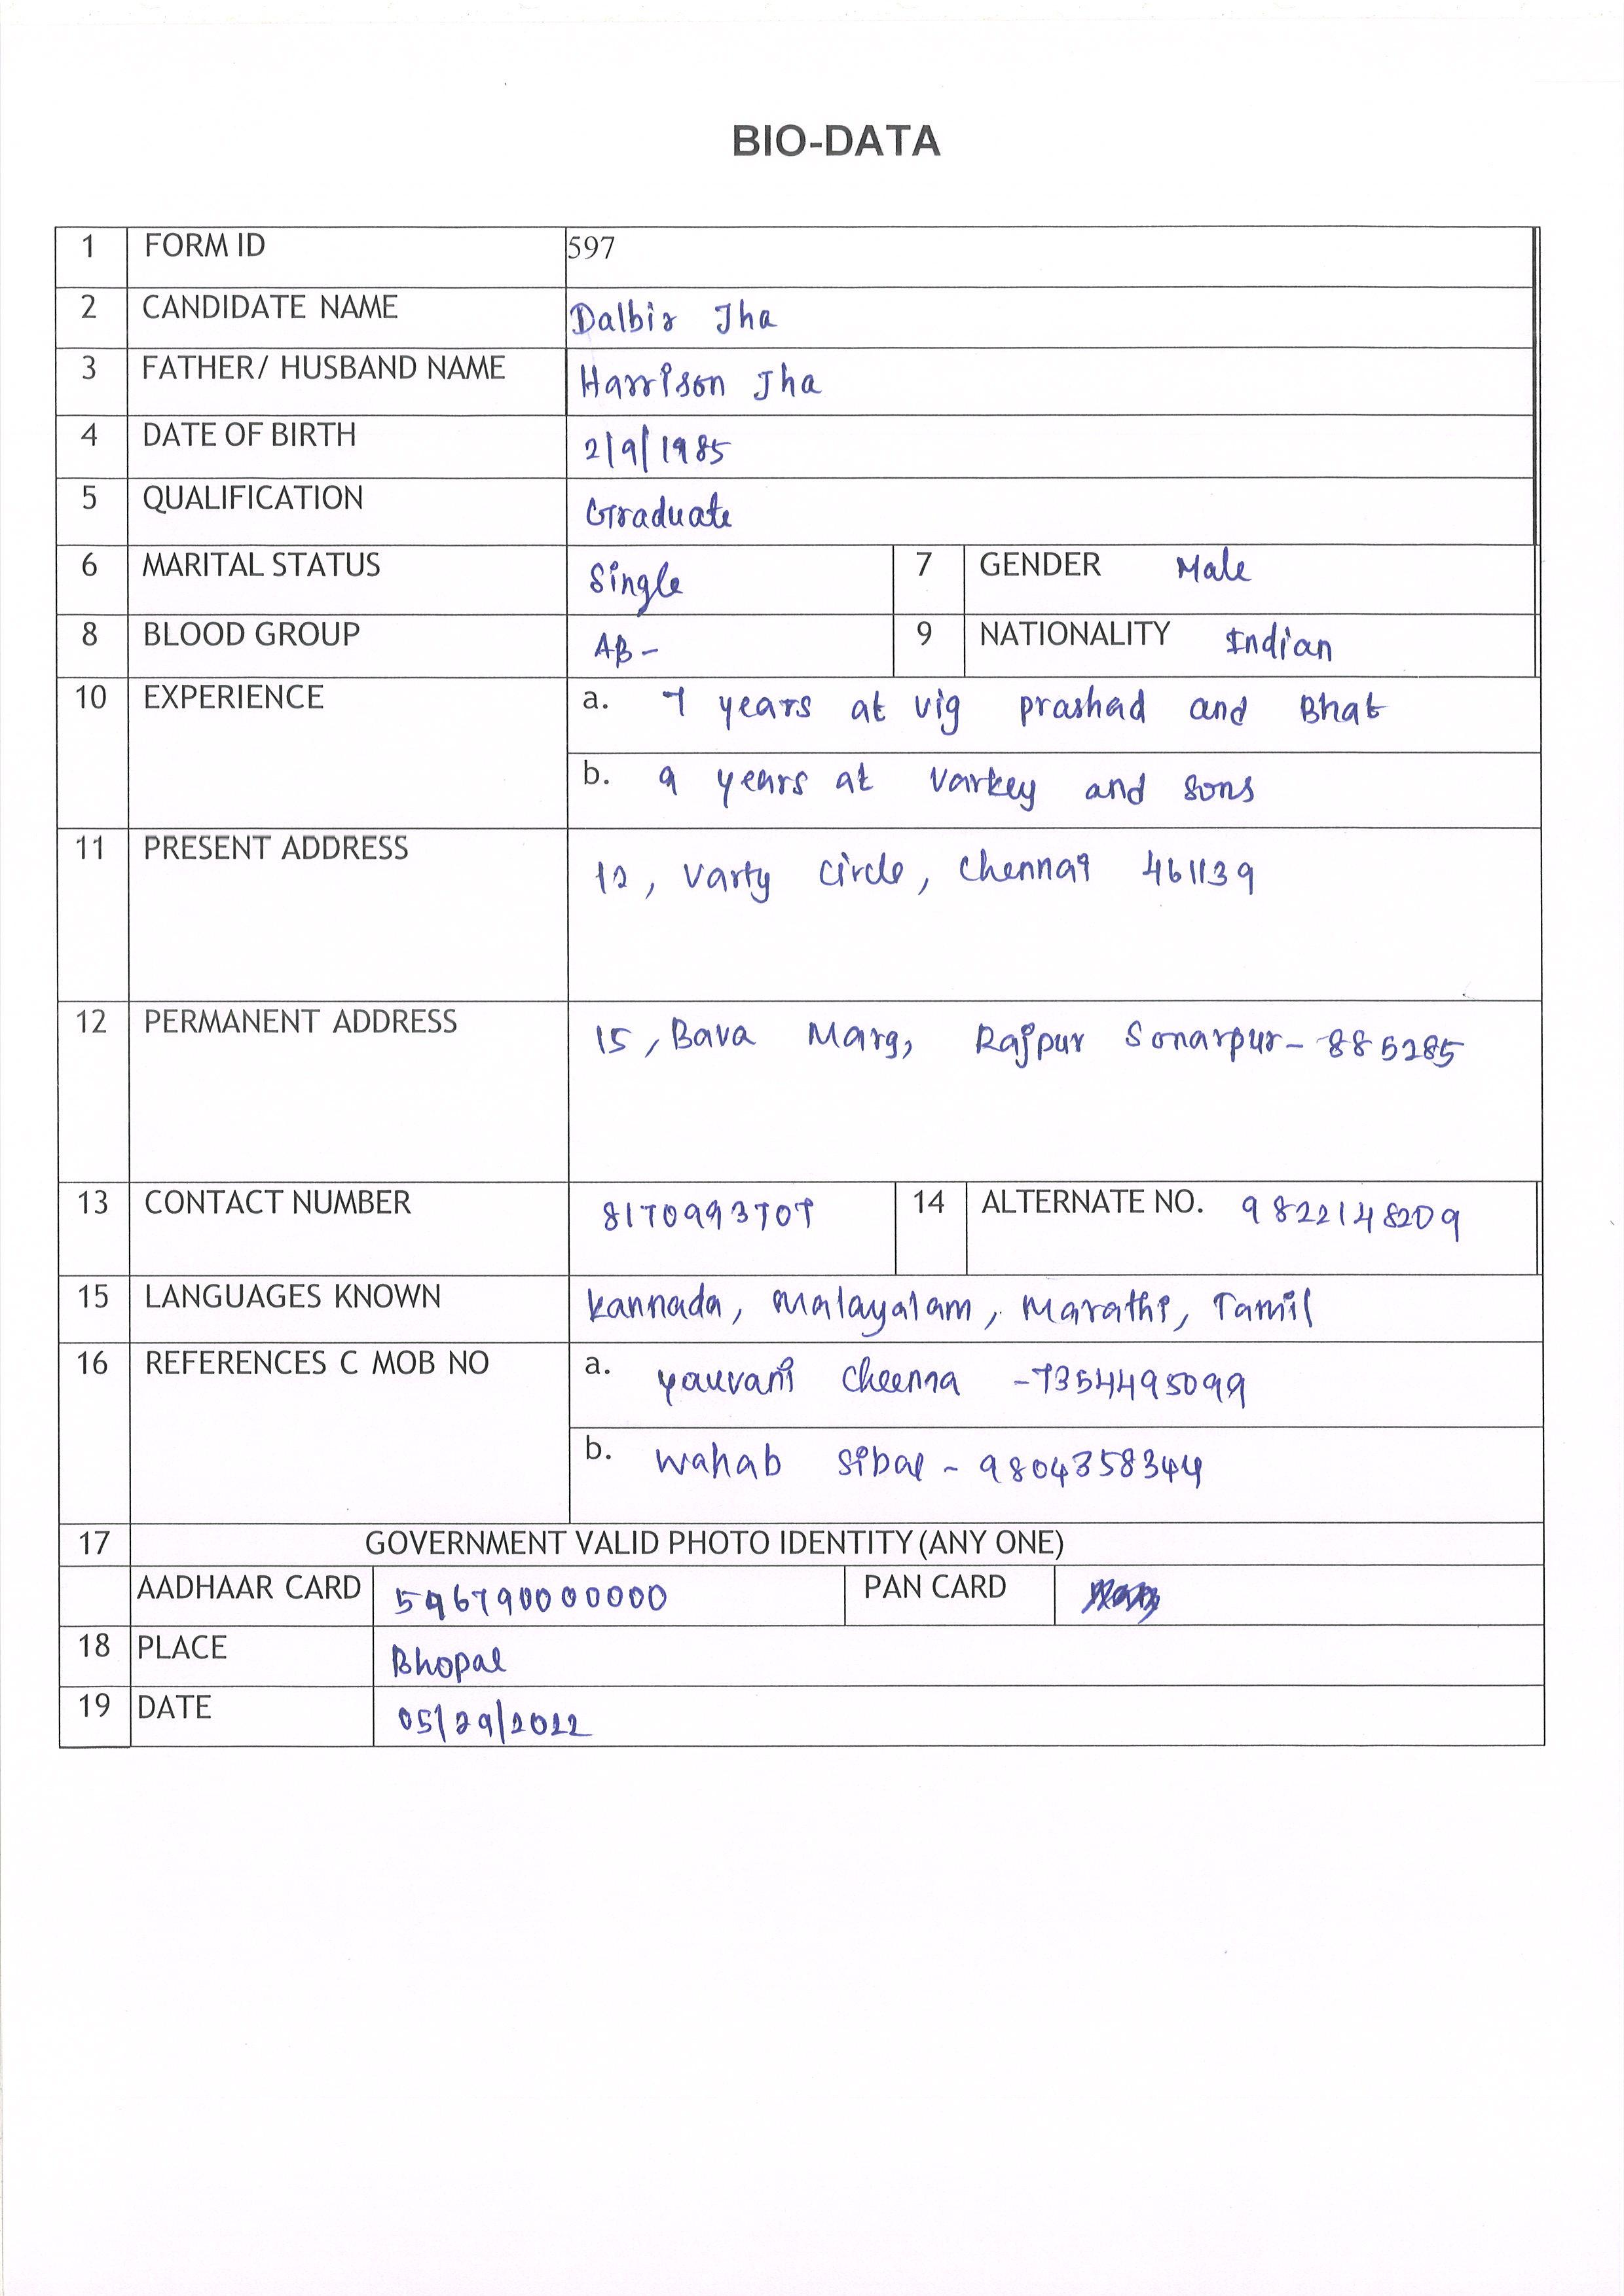 BIO-DATA
1 FORM ID 597
2 CANDIDATE NAME Dalbir Jha
3 FATHER/ HUSBAND NAME Harrison Jha
4 DATE OF BIRTH 2/9/1985
5 QUALIFICATION Graduate
6 MARITAL STATUS Single 7 GENDER Male
8 BLOOD GROUP AB- 9 NATIONALITY Indian
10 EXPERIENCE a. 7 years at vig prashad and Bhat
b. 9 years at Varkey and Sons
11 PRESENT ADDRESS 12, Varty Circle, Chennai 461139
12 PERMANENT ADDRESS 15, Bava Marg, Rajpur Sonarpur-885285
13 CONTACT NUMBER 8170993707 14 ALTERNATE NO. 9822148209
15 LANGUAGES KNOWN Kannada, Malayalam, Marathi, Tamil
16 REFERENCES C MOB NO a. Yauvani Cheema -7354495099
b. Wahab Sibal - 9804358344
17 GOVERNMENT VALID PHOTO IDENTITY (ANY ONE)
AADHAAR CARD 596790000000 PAN CARD
18 PLACE Bhopal
19 DATE 05/29/2022